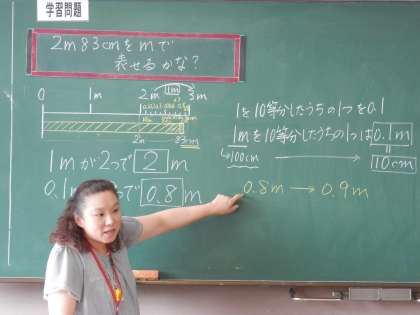 学習問題
2m83cmをmで
表せるかな?
0 1m 2m 1m 3m
2m 83cm
1mが2つで 2 m
0.1m で 0.8 m
1を10等分したうちの1つを0.1
1mを10等分したうちの1つは 0.1m
↳100cm → 10cm
0.8m → 0.9m